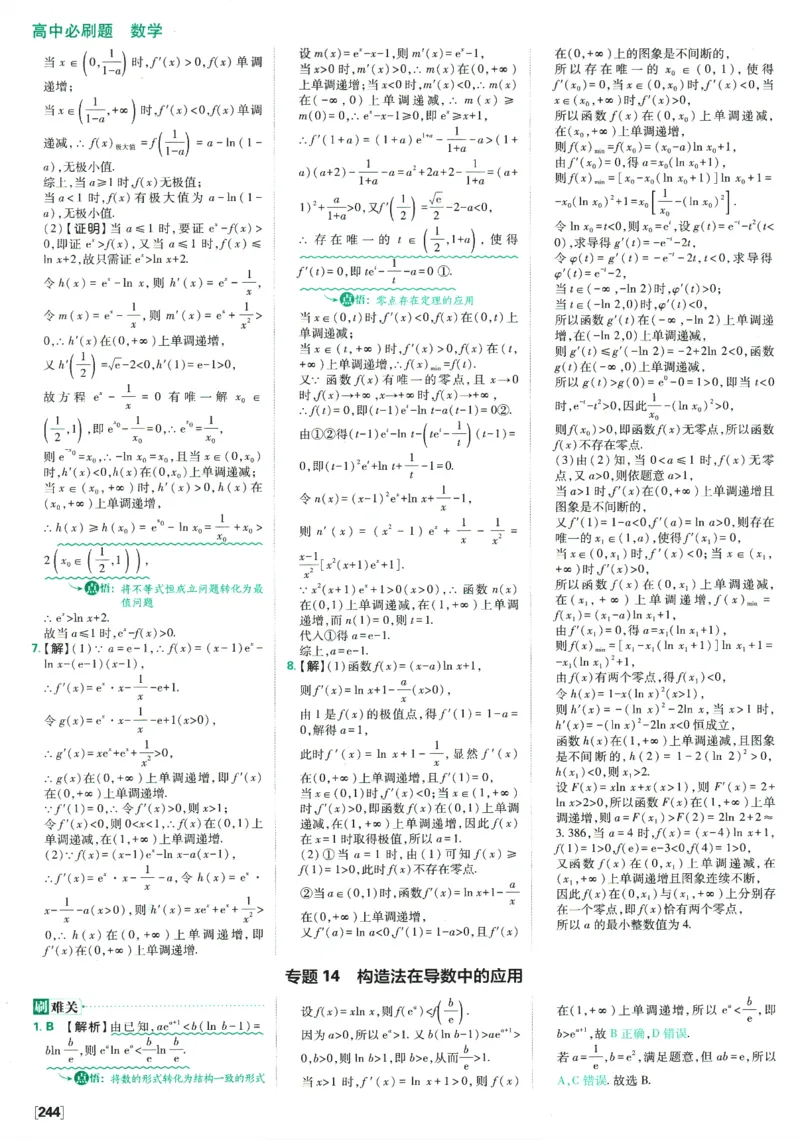 高中必刷题 数学
当 x∈(0, 1/(1-a)) 时,f′(x)>0,f(x)单调
递增;
当 x∈(1/(1-a),+∞) 时,f′(x)<0,f(x)单调
递减,∴f(x)极大值=f(1/(1-a))=a-ln(1-
a),无极小值.
综上,当 a≥1 时,f(x)无极值;
当 a<1 时,f(x)有极大值为 a-ln(1-
a),无极小值.
(2)【证明】当 a≤1 时,要证 eˣ-f(x)>
0,即证 eˣ>f(x),又当 a≤1 时,f(x)≤
ln x+2,故只需证 eˣ>ln x+2.
令 h(x)=eˣ-ln x,则 h′(x)=eˣ-1/x,
令 m(x)=eˣ-1/x,则 m′(x)=eˣ+1/x²>
0,∴h′(x)在(0,+∞)上单调递增,
又 h′(1/2)=√e-2<0,h′(1)=e-1>0,
故方程 eˣ-1/x=0 有唯一解 x₀∈
(1/2,1),即 e^x₀-1/x₀=0,∴e^x₀=1/x₀,
则 e^-x₀=x₀,∴-ln x₀=x₀,且当 x∈(0,x₀)
时,h′(x)<0,h(x)在(0,x₀)上单调递减;
当 x∈(x₀,+∞)时,h′(x)>0,h(x)在
(x₀,+∞)上单调递增,
∴h(x)≥h(x₀)=e^x₀-ln x₀=1/x₀+x₀>
2(x₀∈(1/2,1)),
点悟:将不等式恒成立问题转化为最
值问题
∴eˣ>ln x+2.
故当 a≤1 时,eˣ-f(x)>0.
7.【解】(1)∵a=e-1,∴f(x)=(x-1)eˣ-
ln x-(e-1)(x-1),
∴f′(x)=eˣ·x-1/x-e+1.
令 g(x)=eˣ·x-1/x-e+1(x>0),
∴g′(x)=xeˣ+eˣ+1/x²>0,
∴g(x)在(0,+∞)上单调递增,即 f′(x)
在(0,+∞)上单调递增.
∵f′(1)=0,∴令 f′(x)>0,则 x>1;
令 f′(x)<0,则 0<x<1,∴f(x)在(0,1)上
单调递减,在(1,+∞)上单调递增.
(2)∵f(x)=(x-1)eˣ-ln x-a(x-1),
∴f′(x)=eˣ·x-1/x-a,令 h(x)=eˣ·
x-1/x-a(x>0),则 h′(x)=xeˣ+eˣ+1/x²>
0,∴h(x)在(0,+∞)上单调递增,即
f′(x)在(0,+∞)上单调递增.
设 m(x)=eˣ-x-1,则 m′(x)=eˣ-1,
当 x>0 时,m′(x)>0,∴m(x)在(0,+∞)
上单调递增;当 x<0 时,m′(x)<0,∴m(x)
在(-∞,0)上单调递减,∴m(x)≥
m(0)=0,∴eˣ-x-1≥0,即 eˣ≥x+1,
∴f′(1+a)=(1+a)e^(1+a)-1/(1+a)-a>(1+
a)(a+2)-1/(1+a)-a=a²+2a+2-1/(1+a)=(a+
1)²+a/(1+a)>0,又 f′(1/2)=√e/2-2-a<0,
∴存在唯一的 t∈(1/2,1+a),使得
f′(t)=0,即 teᵗ-1/t-a=0 ①.
点悟:零点存在定理的应用
当 x∈(0,t)时,f′(x)<0,f(x)在(0,t)上
单调递减;
当 x∈(t,+∞)时,f′(x)>0,f(x)在(t,
+∞)上单调递增,∴f(x)min=f(t).
又∵函数 f(x)有唯一的零点,且 x→0
时,f(x)→+∞,x→+∞时,f(x)→+∞,
∴f(t)=0,即(t-1)eᵗ-ln t-a(t-1)=0②.
由①②得(t-1)eᵗ-ln t-(teᵗ-1/t)(t-1)=
0,即(t-1)²eᵗ+ln t+1/t-1=0.
令 n(x)=(x-1)²eˣ+ln x+1/x-1,
则 n′(x)=(x²-1)eˣ+1/x-1/x²=
(x-1)/x²[x²(x+1)eˣ+1].
∵x²(x+1)eˣ+1>0(x>0),∴函数 n(x)
在(0,1)上单调递减,在(1,+∞)上单调
递增,而 n(1)=0,则 t=1.
代入①得 a=e-1.
综上,a=e-1.
8.【解】(1)函数 f(x)=(x-a)ln x+1,
则 f′(x)=ln x+1-a/x(x>0),
由 1 是 f(x)的极值点,得 f′(1)=1-a=
0,解得 a=1,
此时 f′(x)=ln x+1-1/x,显然 f′(x)
在(0,+∞)上单调递增,且 f′(1)=0,
当 x∈(0,1)时,f′(x)<0;当 x∈(1,+∞)
时,f′(x)>0,即函数 f(x)在(0,1)上单调
递减,在(1,+∞)上单调递增,因此 f(x)
在 x=1 时取得极值,所以 a=1.
(2)①当 a=1 时,由(1)可知 f(x)≥
f(1)=1>0,此时 f(x)不存在零点.
②当 a∈(0,1)时,函数 f′(x)=ln x+1-a/x
在(0,+∞)上单调递增,
又 f′(a)=ln a<0,f′(1)=1-a>0,且 f′(x)
在(0,+∞)上的图象是不间断的,
所以存在唯一的 x₀∈(0,1),使得
f′(x₀)=0,当 x∈(0,x₀)时,f′(x)<0,当
x∈(x₀,+∞)时,f′(x)>0,
所以函数 f(x)在(0,x₀)上单调递减,
在(x₀,+∞)上单调递增,
则 f(x)min=f(x₀)=(x₀-a)ln x₀+1,
由 f′(x₀)=0,得 a=x₀(ln x₀+1),
则 f(x)min=[x₀-x₀(ln x₀+1)]ln x₀+1=
-x₀(ln x₀)²+1=x₀[1/x₀-(ln x₀)²].
令 ln x₀=t<0,则 x₀=eᵗ,设 g(t)=e⁻ᵗ-t²(t<
0),求导得 g′(t)=-e⁻ᵗ-2t,
令 φ(t)=g′(t)=-e⁻ᵗ-2t,t<0,求导得
φ′(t)=e⁻ᵗ-2,
当 t∈(-∞,-ln 2)时,φ′(t)>0;
当 t∈(-ln 2,0)时,φ′(t)<0,
所以函数 g′(t)在(-∞,-ln 2)上单调递
增,在(-ln 2,0)上单调递减,
则 g′(t)≤g′(-ln 2)=-2+2ln 2<0,函数
g(t)在(-∞,0)上单调递减,
所以 g(t)>g(0)=e⁰-0=1>0,即当 t<0
时,e⁻ᵗ-t²>0,因此 1/x₀-(ln x₀)²>0,
则 f(x₀)>0,即函数 f(x)无零点,所以函数
f(x)不存在零点.
(3)由(2)知,当 0<a≤1 时,f(x)无零
点,又 a>0,则依题意 a>1,
当 a>1 时,f′(x)在(0,+∞)上单调递增且
图象是不间断的,
又 f′(1)=1-a<0,f′(a)=ln a>0,则存在
唯一的 x₁∈(1,a),使得 f′(x₁)=0,
当 x∈(0,x₁)时,f′(x)<0;当 x∈(x₁,
+∞)时,f′(x)>0,
所以函数 f(x)在(0,x₁)上单调递减,
在(x₁,+∞)上单调递增,f(x)min=
f(x₁)=(x₁-a)ln x₁+1,
由 f′(x₁)=0,得 a=x₁(ln x₁+1),
则 f(x)min=[x₁-x₁(ln x₁+1)]ln x₁+1=
-x₁(ln x₁)²+1,
由 f(x)有两个零点,得 f(x₁)<0,
令 h(x)=1-x(ln x)²(x>1),
则 h′(x)=-(ln x)²-2ln x,当 x>1 时,
h′(x)=-(ln x)²-2ln x<0 恒成立,
函数 h(x)在(1,+∞)上单调递减,且图象
是不间断的,h(2)=1-2(ln 2)²>0,
h(x₁)<0,则 x₁>2.
设 F(x)=xln x+x(x>1),则 F′(x)=2+
ln x>2>0,所以函数 F(x)在(1,+∞)上单
调递增,则 a=F(x₁)>F(2)=2ln 2+2≈
3.386,当 a=4 时,f(x)=(x-4)ln x+1,
f(1)=1>0,f(e)=e-3<0,f(4)=1>0,
又函数 f(x)在(0,x₁)上单调递减,在
(x₁,+∞)上单调递增且图象连续不断,
因此 f(x)在(0,x₁)与(x₁,+∞)上分别存
在一个零点,即 f(x)恰有两个零点,
所以 a 的最小整数值为 4.
专题 14 构造法在导数中的应用
刷难关
1. B 【解析】由已知,ae^(a+1)<b(ln b-1)=
bln b/e,则 eᵃln eᵃ<b/e ln b/e.
点悟:将数的形式转化为结构一致的形式
设 f(x)=xln x,则 f(eᵃ)<f(b/e).
因为 a>0,所以 eᵃ>1.又 b(ln b-1)>ae^(a+1)>
0,b>0,则 ln b>1,即 b>e,从而 b/e>1.
当 x>1 时,f′(x)=ln x+1>0,则 f(x)
在(1,+∞)上单调递增,所以 eᵃ<b/e,即
b>e^(a+1),故 B 正确,D 错误.
若 a=1/e,b=e²,满足题意,但 ab=e,所以
A,C 错误.故选 B.
[244]